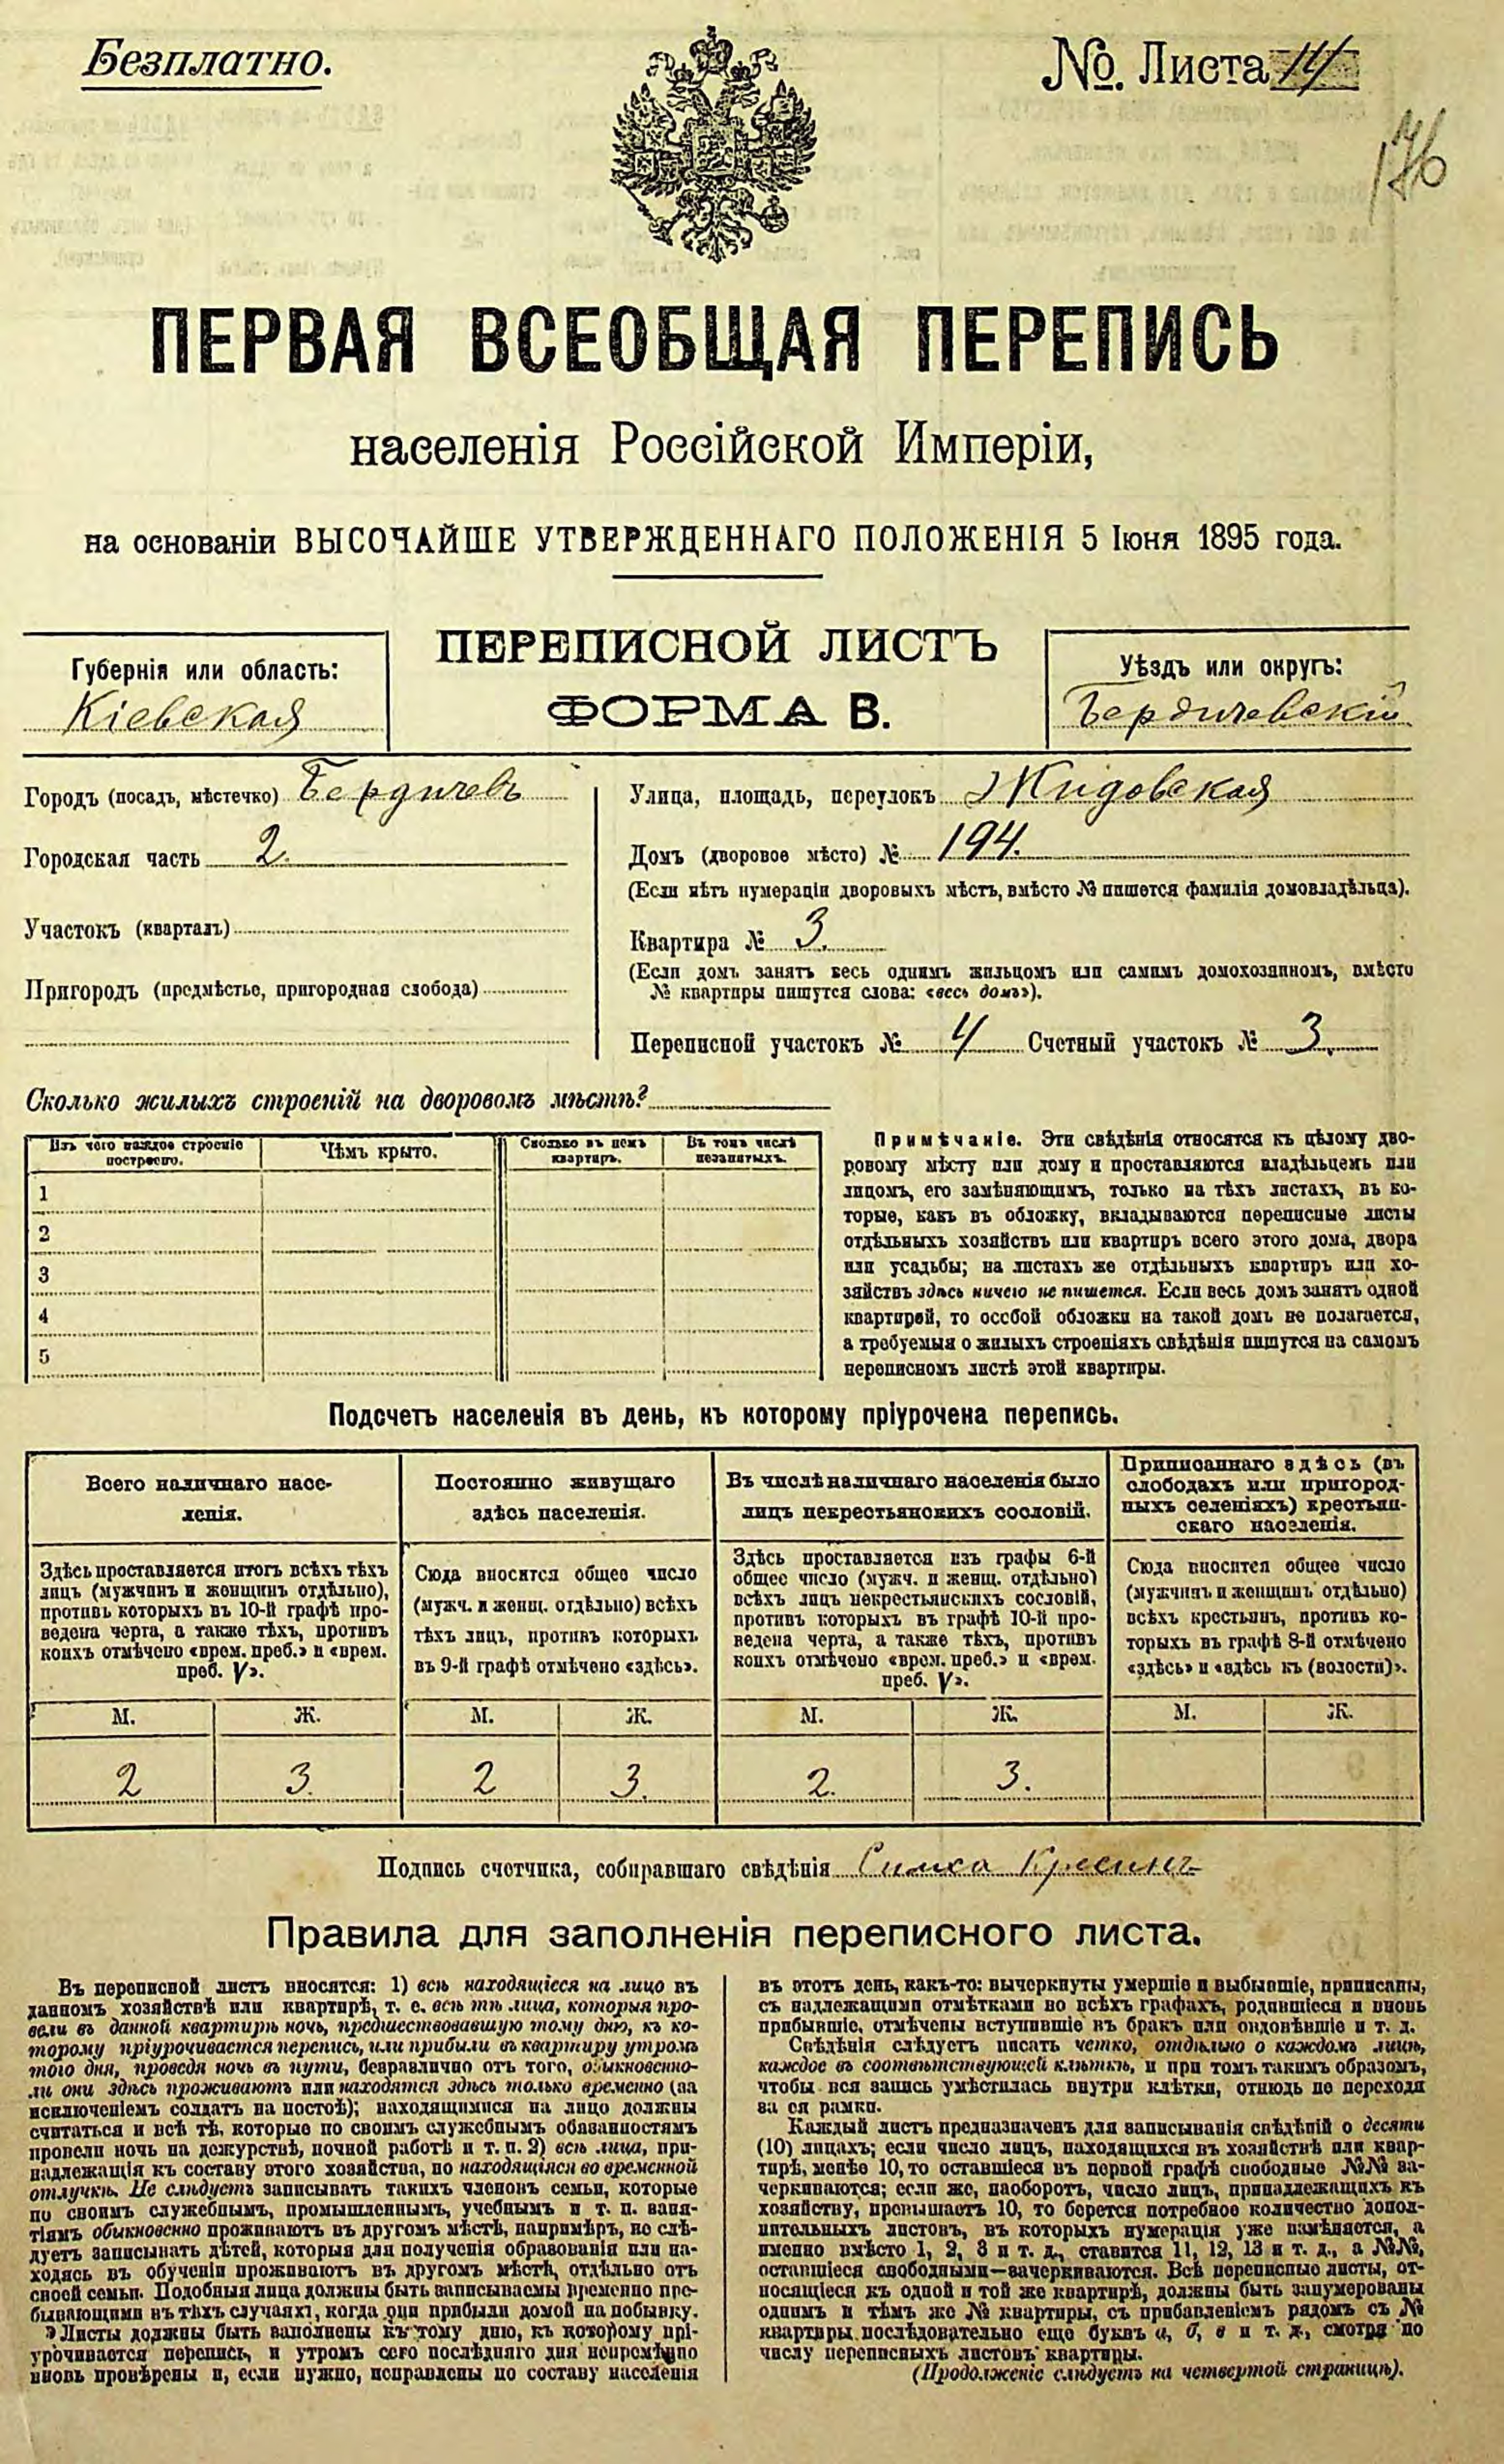 Безплатно.
№. Листа 14
176
ПЕРВАЯ ВСЕОБЩАЯ ПЕРЕПИСЬ
населенія Россійской Имперіи,
на основаніи ВЫСОЧАЙШЕ УТВЕРЖДЕННАГО ПОЛОЖЕНІЯ 5 Іюня 1895 года.
Губернія или область:
Кіевская
ПЕРЕПИСНОЙ ЛИСТЪ
ФОРМА В.
Уѣздъ или округъ:
Бердичевскій
Городъ (посадъ, мѣстечко) Бердичевъ
Городская часть 2.
Участокъ (кварталъ)
Пригородъ (предмѣстье, пригородная слобода)
Улица, площадь, переулокъ Жидовская
Домъ (дворовое мѣсто) № 194.
(Если нѣтъ нумераціи дворовыхъ мѣстъ, вмѣсто № пишется фамилія домовладѣльца).
Квартира № 3.
(Если домъ занятъ весь однимъ жильцомъ или самимъ домохозяиномъ, вмѣсто
№ квартиры пишутся слова: «весь домъ»).
Переписной участокъ № 4 Счетный участокъ № 3.
Сколько жилыхъ строеній на дворовомъ мѣстѣ?
Изъ чего каждое строеніе
построено.
Чѣмъ крыто.
Сколько въ немъ
квартиръ.
Въ томъ числѣ
незанятыхъ.
1
2
3
4
5
Примѣчаніе. Эти свѣдѣнія относятся къ цѣлому дво-
ровому мѣсту или дому и проставляются владѣльцемъ или
лицомъ, его замѣняющимъ, только на тѣхъ листахъ, въ ко-
торые, какъ въ обложку, вкладываются переписные листы
отдѣльныхъ хозяйствъ или квартиръ всего этого дома, двора
или усадьбы; на листахъ же отдѣльныхъ квартиръ или хо-
зяйствъ здѣсь ничего не пишется. Если весь домъ занятъ одной
квартирой, то особой обложки на такой домъ не полагается,
а требуемыя о жилыхъ строеніяхъ свѣдѣнія пишутся на самомъ
переписномъ листѣ этой квартиры.
Подсчетъ населенія въ день, къ которому пріурочена перепись.
Всего наличнаго насе-
ленія.
Здѣсь проставляется итогъ всѣхъ тѣхъ
лицъ (мужчинъ и женщинъ отдѣльно),
противъ которыхъ въ 10-й графѣ про-
ведена черта, а также тѣхъ, противъ
коихъ отмѣчено «врем. преб.» и «врем.
преб. V».
М. Ж.
2 3.
Постоянно живущаго
здѣсь населенія.
Сюда вносится общее число
(мужч. и женщ. отдѣльно) всѣхъ
тѣхъ лицъ, противъ которыхъ
въ 9-й графѣ отмѣчено «здѣсь».
М. Ж.
2 3.
Въ числѣ наличнаго населенія было
лицъ некрестьянскихъ сословій.
Здѣсь проставляется изъ графы 6-й
общее число (мужч. и женщ. отдѣльно)
всѣхъ лицъ некрестьянскихъ сословій,
противъ которыхъ въ графѣ 10-й про-
ведена черта, а также тѣхъ, противъ
коихъ отмѣчено «врем. преб.» и «врем.
преб. V».
М. Ж.
2. 3.
Приписаннаго здѣсь (въ
слободахъ или пригород-
ныхъ селеніяхъ) крестьян-
скаго населенія.
Сюда вносится общее число
(мужчинъ и женщинъ отдѣльно)
всѣхъ крестьянъ, противъ ко-
торыхъ въ графѣ 8-й отмѣчено
«здѣсь» и «здѣсь къ (волости)».
М. Ж.
Подпись счетчика, собиравшаго свѣдѣнія
Правила для заполненія переписного листа.
Въ переписной листъ вносятся: 1) всѣ находящіеся на лицо въ
данномъ хозяйствѣ или квартирѣ, т. е. всѣ тѣ лица, которыя про-
вели въ данной квартирѣ ночь, предшествовавшую тому дню, къ ко-
торому пріурочивается перепись, или прибыли въ квартиру утромъ
того дня, проведя ночь въ пути, безразлично отъ того, обыкновенно-
ли они здѣсь проживаютъ или находятся здѣсь только временно (за
исключеніемъ солдатъ на постоѣ); находящимися на лицо должны
считаться и всѣ тѣ, которые по своимъ служебнымъ обязанностямъ
провели ночь на дежурствѣ, ночной работѣ и т. п. 2) всѣ лица, при-
надлежащія къ составу этого хозяйства, но находящіяся во временной
отлучкѣ. Не слѣдуетъ записывать такихъ членовъ семьи, которые
по своимъ служебнымъ, промышленнымъ, учебнымъ и т. п. заня-
тіямъ обыкновенно проживаютъ въ другомъ мѣстѣ, напримѣръ, не слѣ-
дуетъ записывать дѣтей, которыя для полученія образованія или на-
ходясь въ обученіи проживаютъ въ другомъ мѣстѣ, отдѣльно отъ
своей семьи. Подобныя лица должны быть записываемы временно пре-
бывающими въ тѣхъ случаяхъ, когда они прибыли домой на побывку.
Листы должны быть заполнены къ тому дню, къ которому прі-
урочивается перепись, и утромъ сего послѣдняго дня непремѣнно
вновь провѣрены и, если нужно, исправлены по составу населенія
въ этотъ день, какъ-то: вычеркнуты умершіе и выбывшіе, приписаны,
съ надлежащими отмѣтками во всѣхъ графахъ, родившіеся и вновь
прибывшіе, отмѣчены вступившіе въ бракъ или овдовѣвшіе и т. д.
Свѣдѣнія слѣдуетъ писать четко, отдѣльно о каждомъ лицѣ,
каждое въ соотвѣтствующей клѣткѣ, и при томъ такимъ образомъ,
чтобы вся запись умѣстилась внутри клѣтки, отнюдь не переходя
за ея рамки.
Каждый листъ предназначенъ для записыванія свѣдѣній о десяти
(10) лицахъ; если число лицъ, находящихся въ хозяйствѣ или квар-
тирѣ, менѣе 10, то оставшіеся въ первой графѣ свободные №№ за-
черкиваются; если же, наоборотъ, число лицъ, принадлежащихъ къ
хозяйству, превышаетъ 10, то берется потребное количество допол-
нительныхъ листовъ, въ которыхъ нумерація уже измѣняется, а
именно вмѣсто 1, 2, 3 и т. д., ставится 11, 12, 13 и т. д., а №№,
оставшіеся свободными—зачеркиваются. Всѣ переписные листы, от-
носящіеся къ одной и той же квартирѣ, должны быть занумерованы
однимъ и тѣмъ же № квартиры, съ прибавленіемъ рядомъ съ №
квартиры послѣдовательно еще буквъ а, б, в и т. д., смотря по
числу переписныхъ листовъ квартиры.
(Продолженіе слѣдуетъ на четвертой страницѣ).